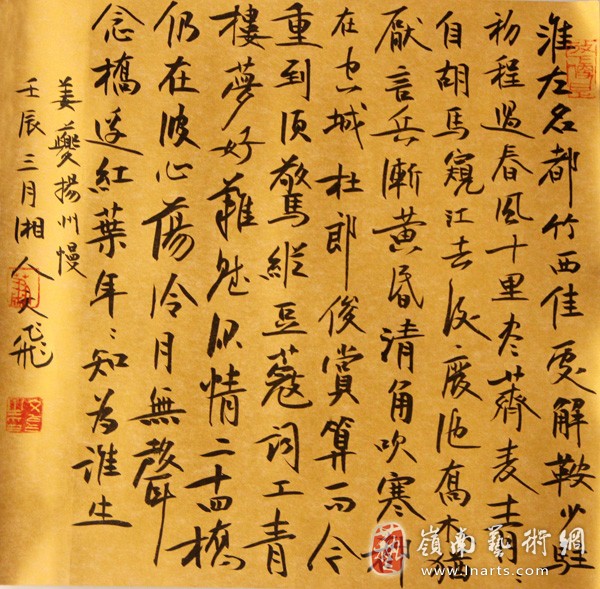 淮左名都竹西佳處解鞍少駐
初程過春風十里尽薺麦青〻
自胡馬窺江去後廢池喬木猶
厭言兵漸黃昏清角吹寒都
在空城杜郎俊賞算而今
重到須驚縱豆蔻詞工青
樓夢好難賦深情二十四橋
仍在波心蕩冷月無聲
念橋邊紅葉年〻知為誰生
姜夔揚州慢
壬辰三月湘人飛
藝
嶺南藝術網
www.lnarts.com